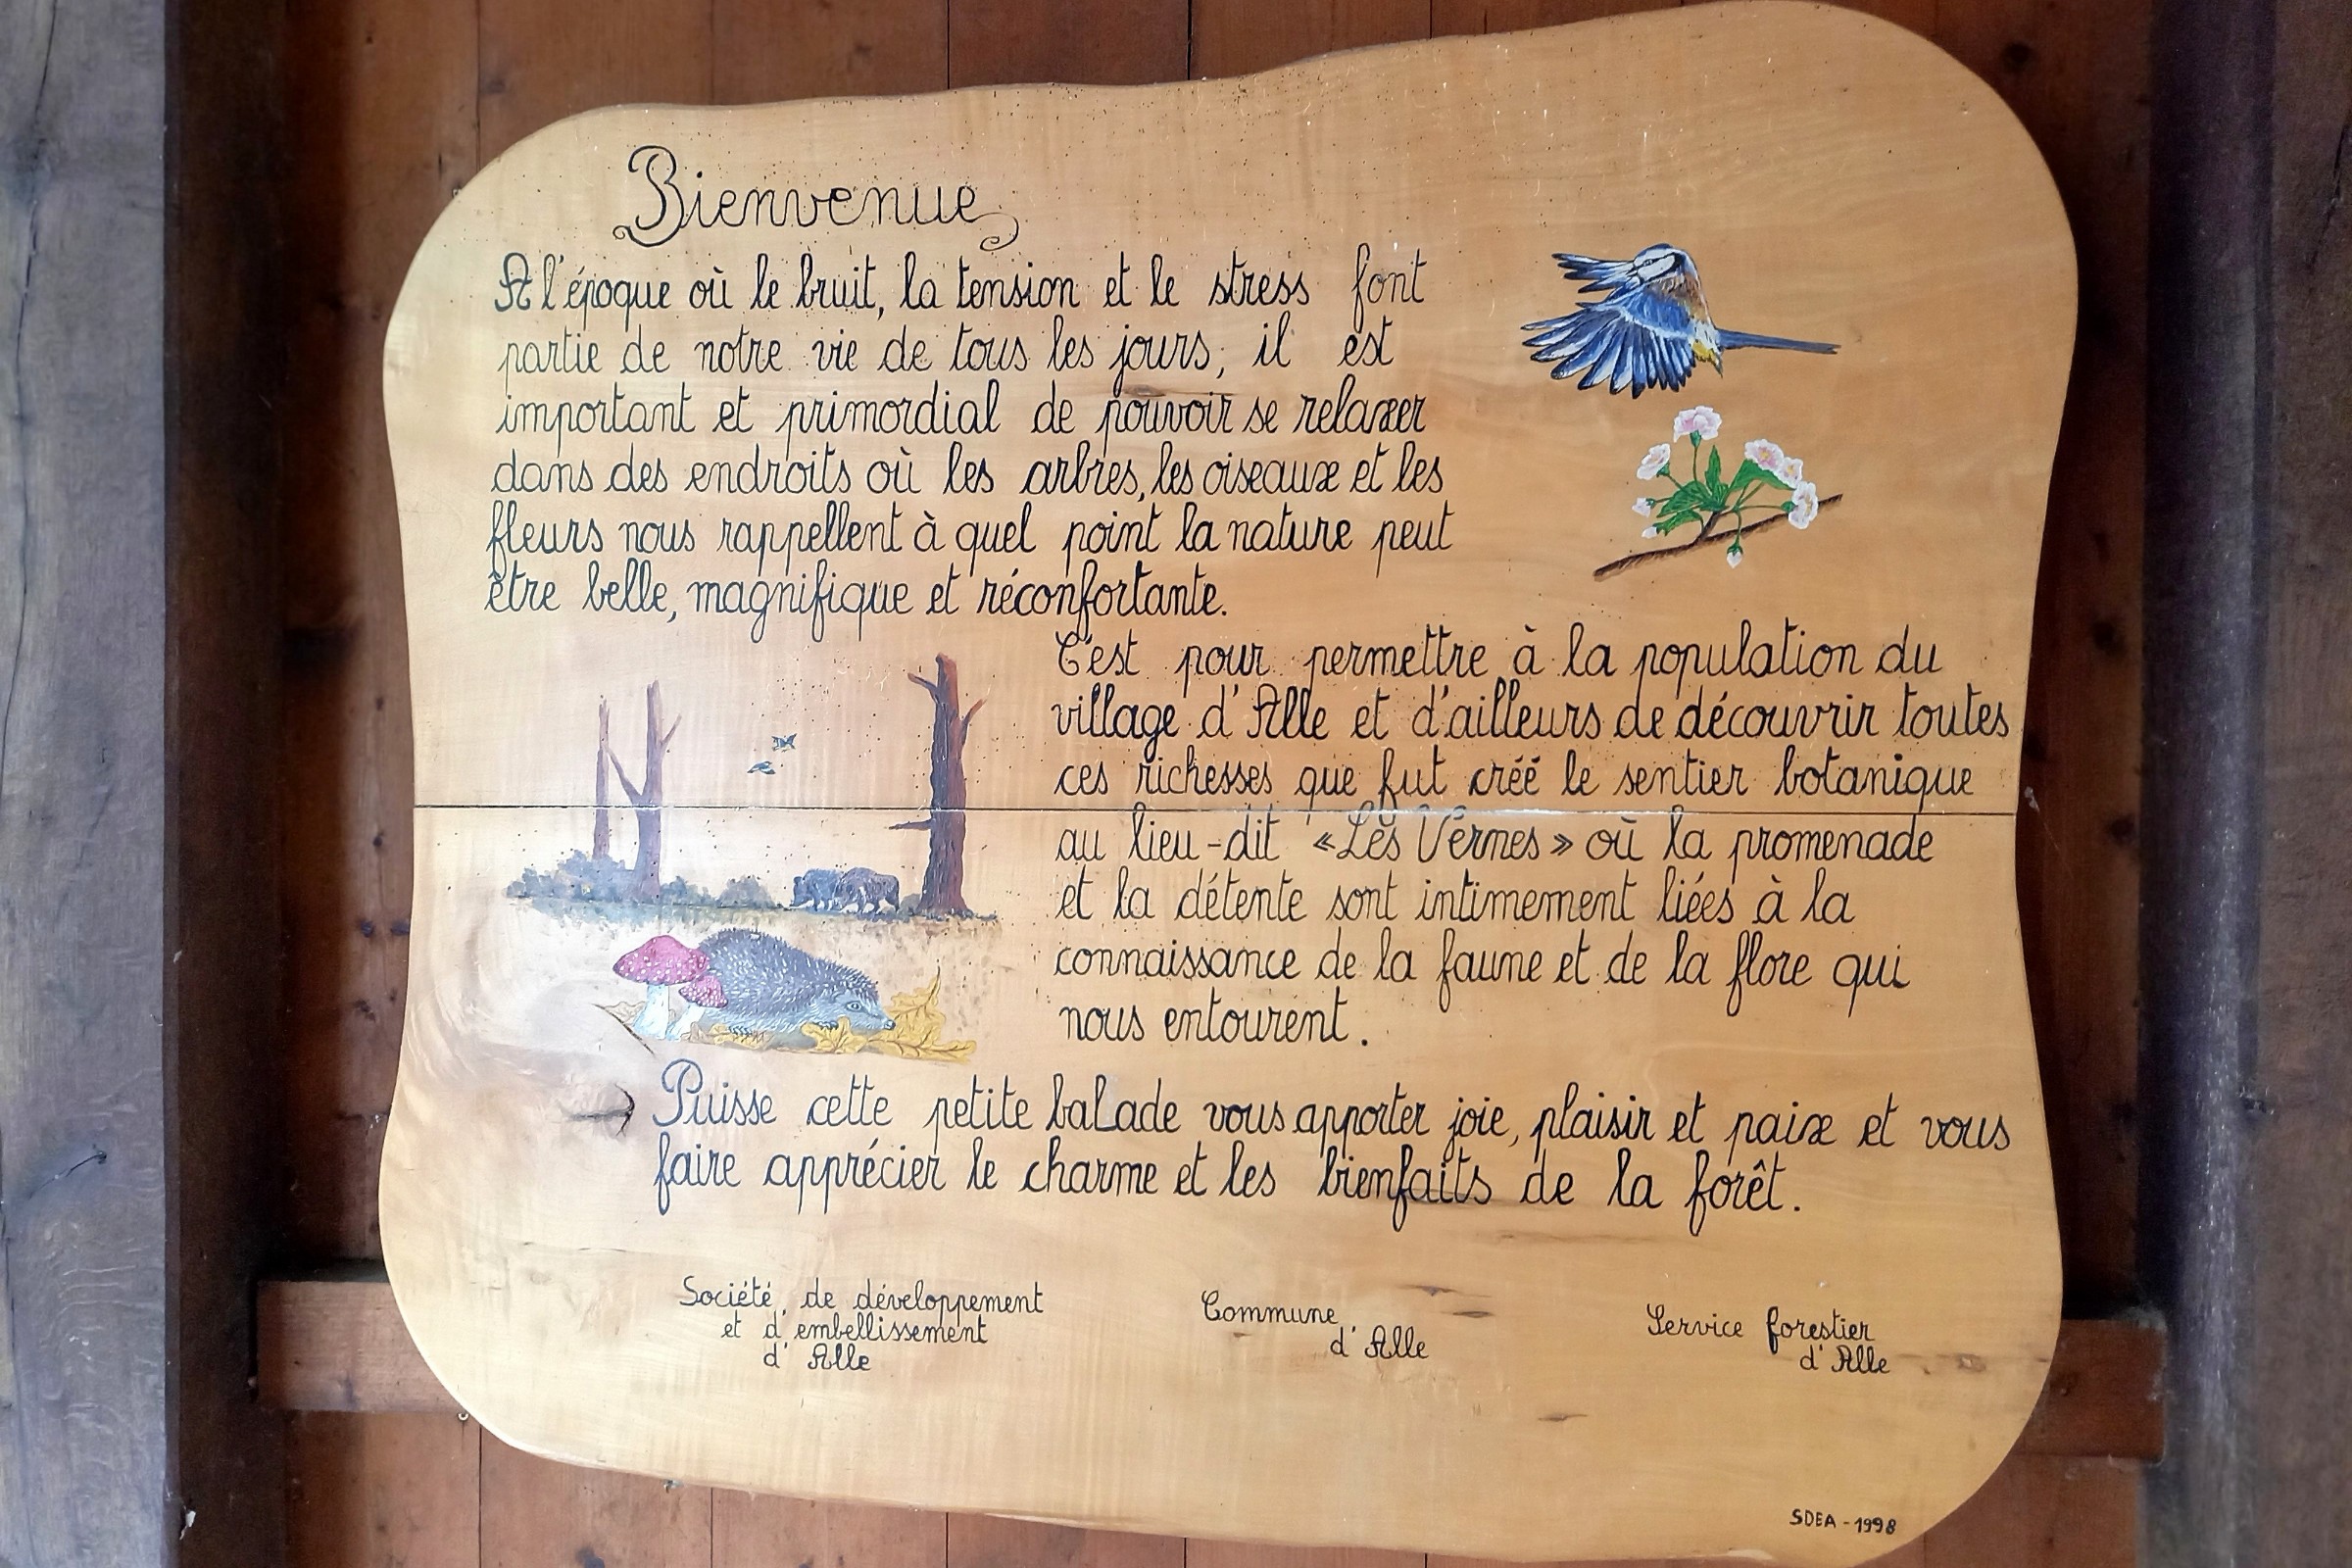 Bienvenue
A l'époque où le bruit, la tension et le stress font
partie de notre vie de tous les jours, il est
important et primordial de pouvoir se relaxer
dans des endroits où les arbres, les oiseaux et les
fleurs nous rappellent à quel point la nature peut
être belle, magnifique et réconfortante.
C'est pour permettre à la population du
village d'Alle et d'ailleurs de découvrir toutes
ces richesses que fut créé le sentier botanique
au lieu-dit «Les Vernes» où la promenade
et la détente sont intimement liées à la
connaissance de la faune et de la flore qui
nous entourent.
Puisse cette petite baLade vous apporter joie, plaisir et paix et vous
faire apprécier le charme et les bienfaits de la forêt.
Société de développement
et d'embellissement
d'Alle
Commune
d'Alle
Service forestier
d'Alle
SDEA - 1998